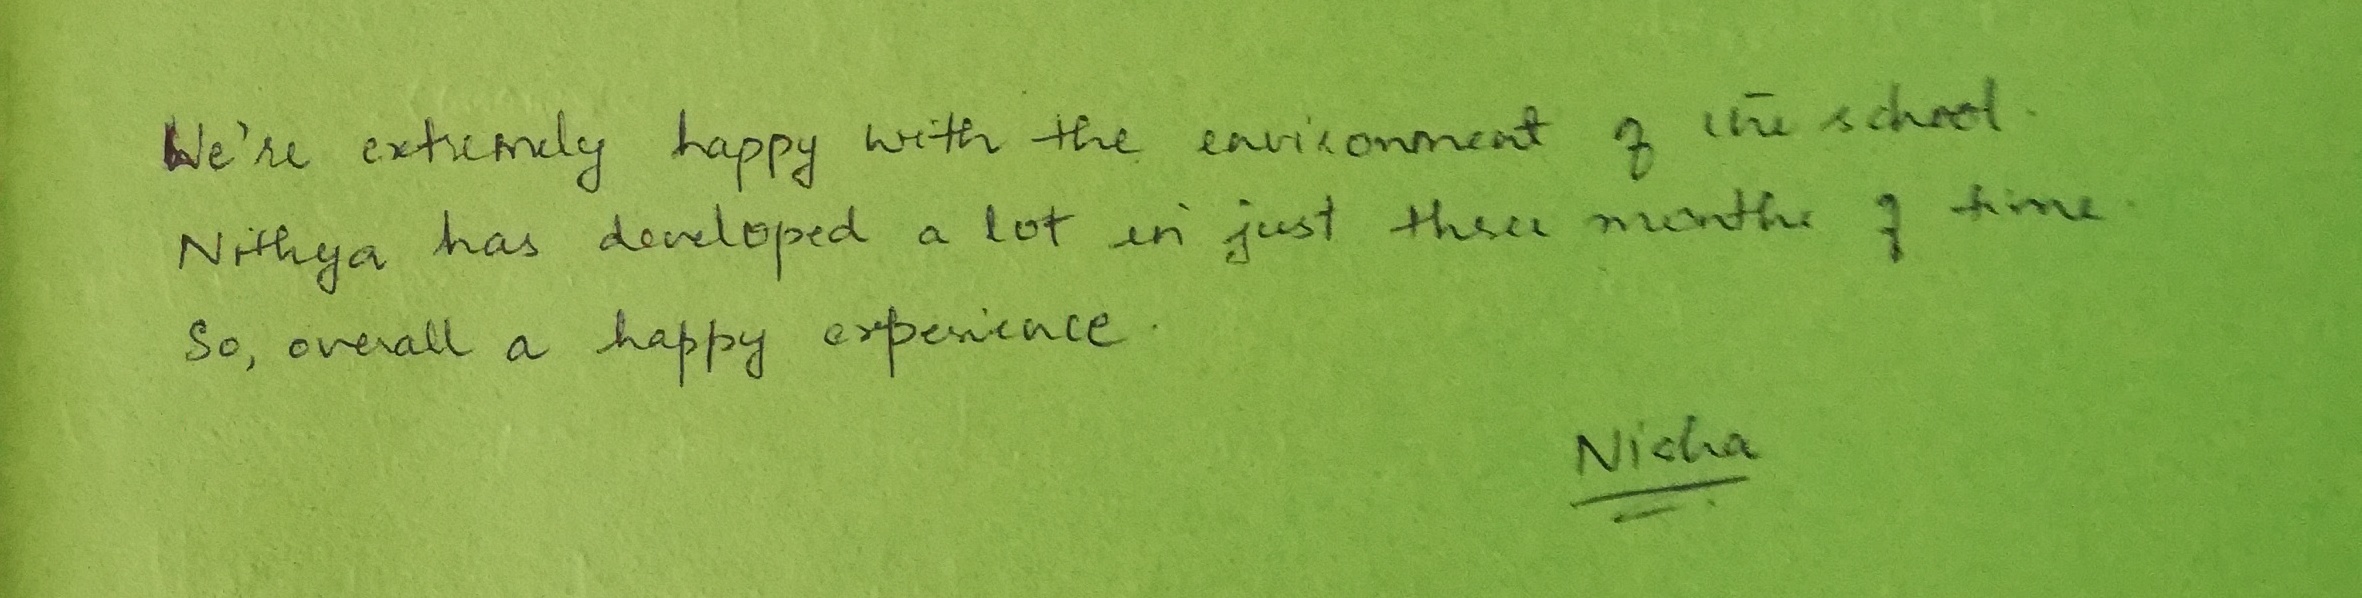 We're extremely happy with the environment of the school.
Nithya has developed a lot in just three months of time.
So, overall a happy experience.
Nisha